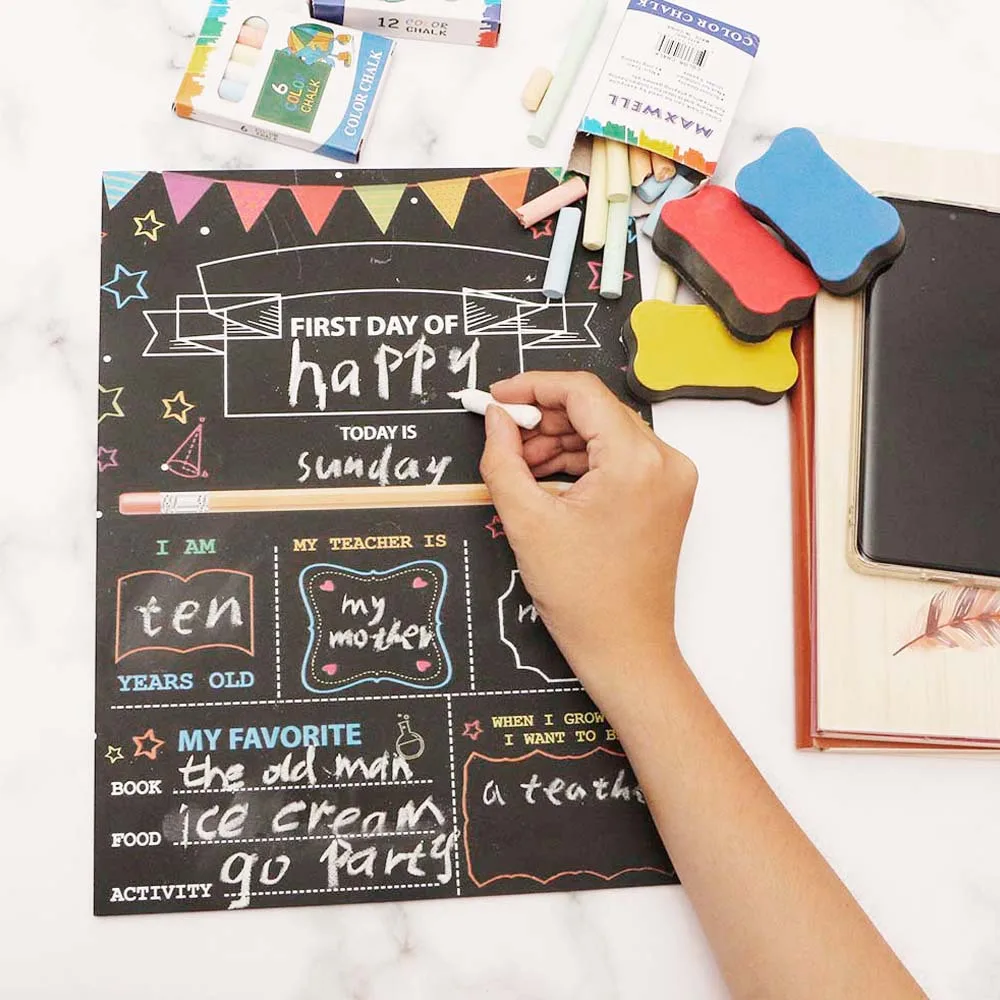 12 COLOR CHALK
6 COLOR CHALK
COLOR CHALK
6 COLOR CHALK
COLOR CHALK
MAXWELL
FIRST DAY OF
happy
TODAY IS
sunday
I AM
ten
YEARS OLD
MY TEACHER IS
my
mother
MY FAVORITE
BOOK the old man
FOOD ice cream
ACTIVITY go party
WHEN I GROW
I WANT TO B
a teathe